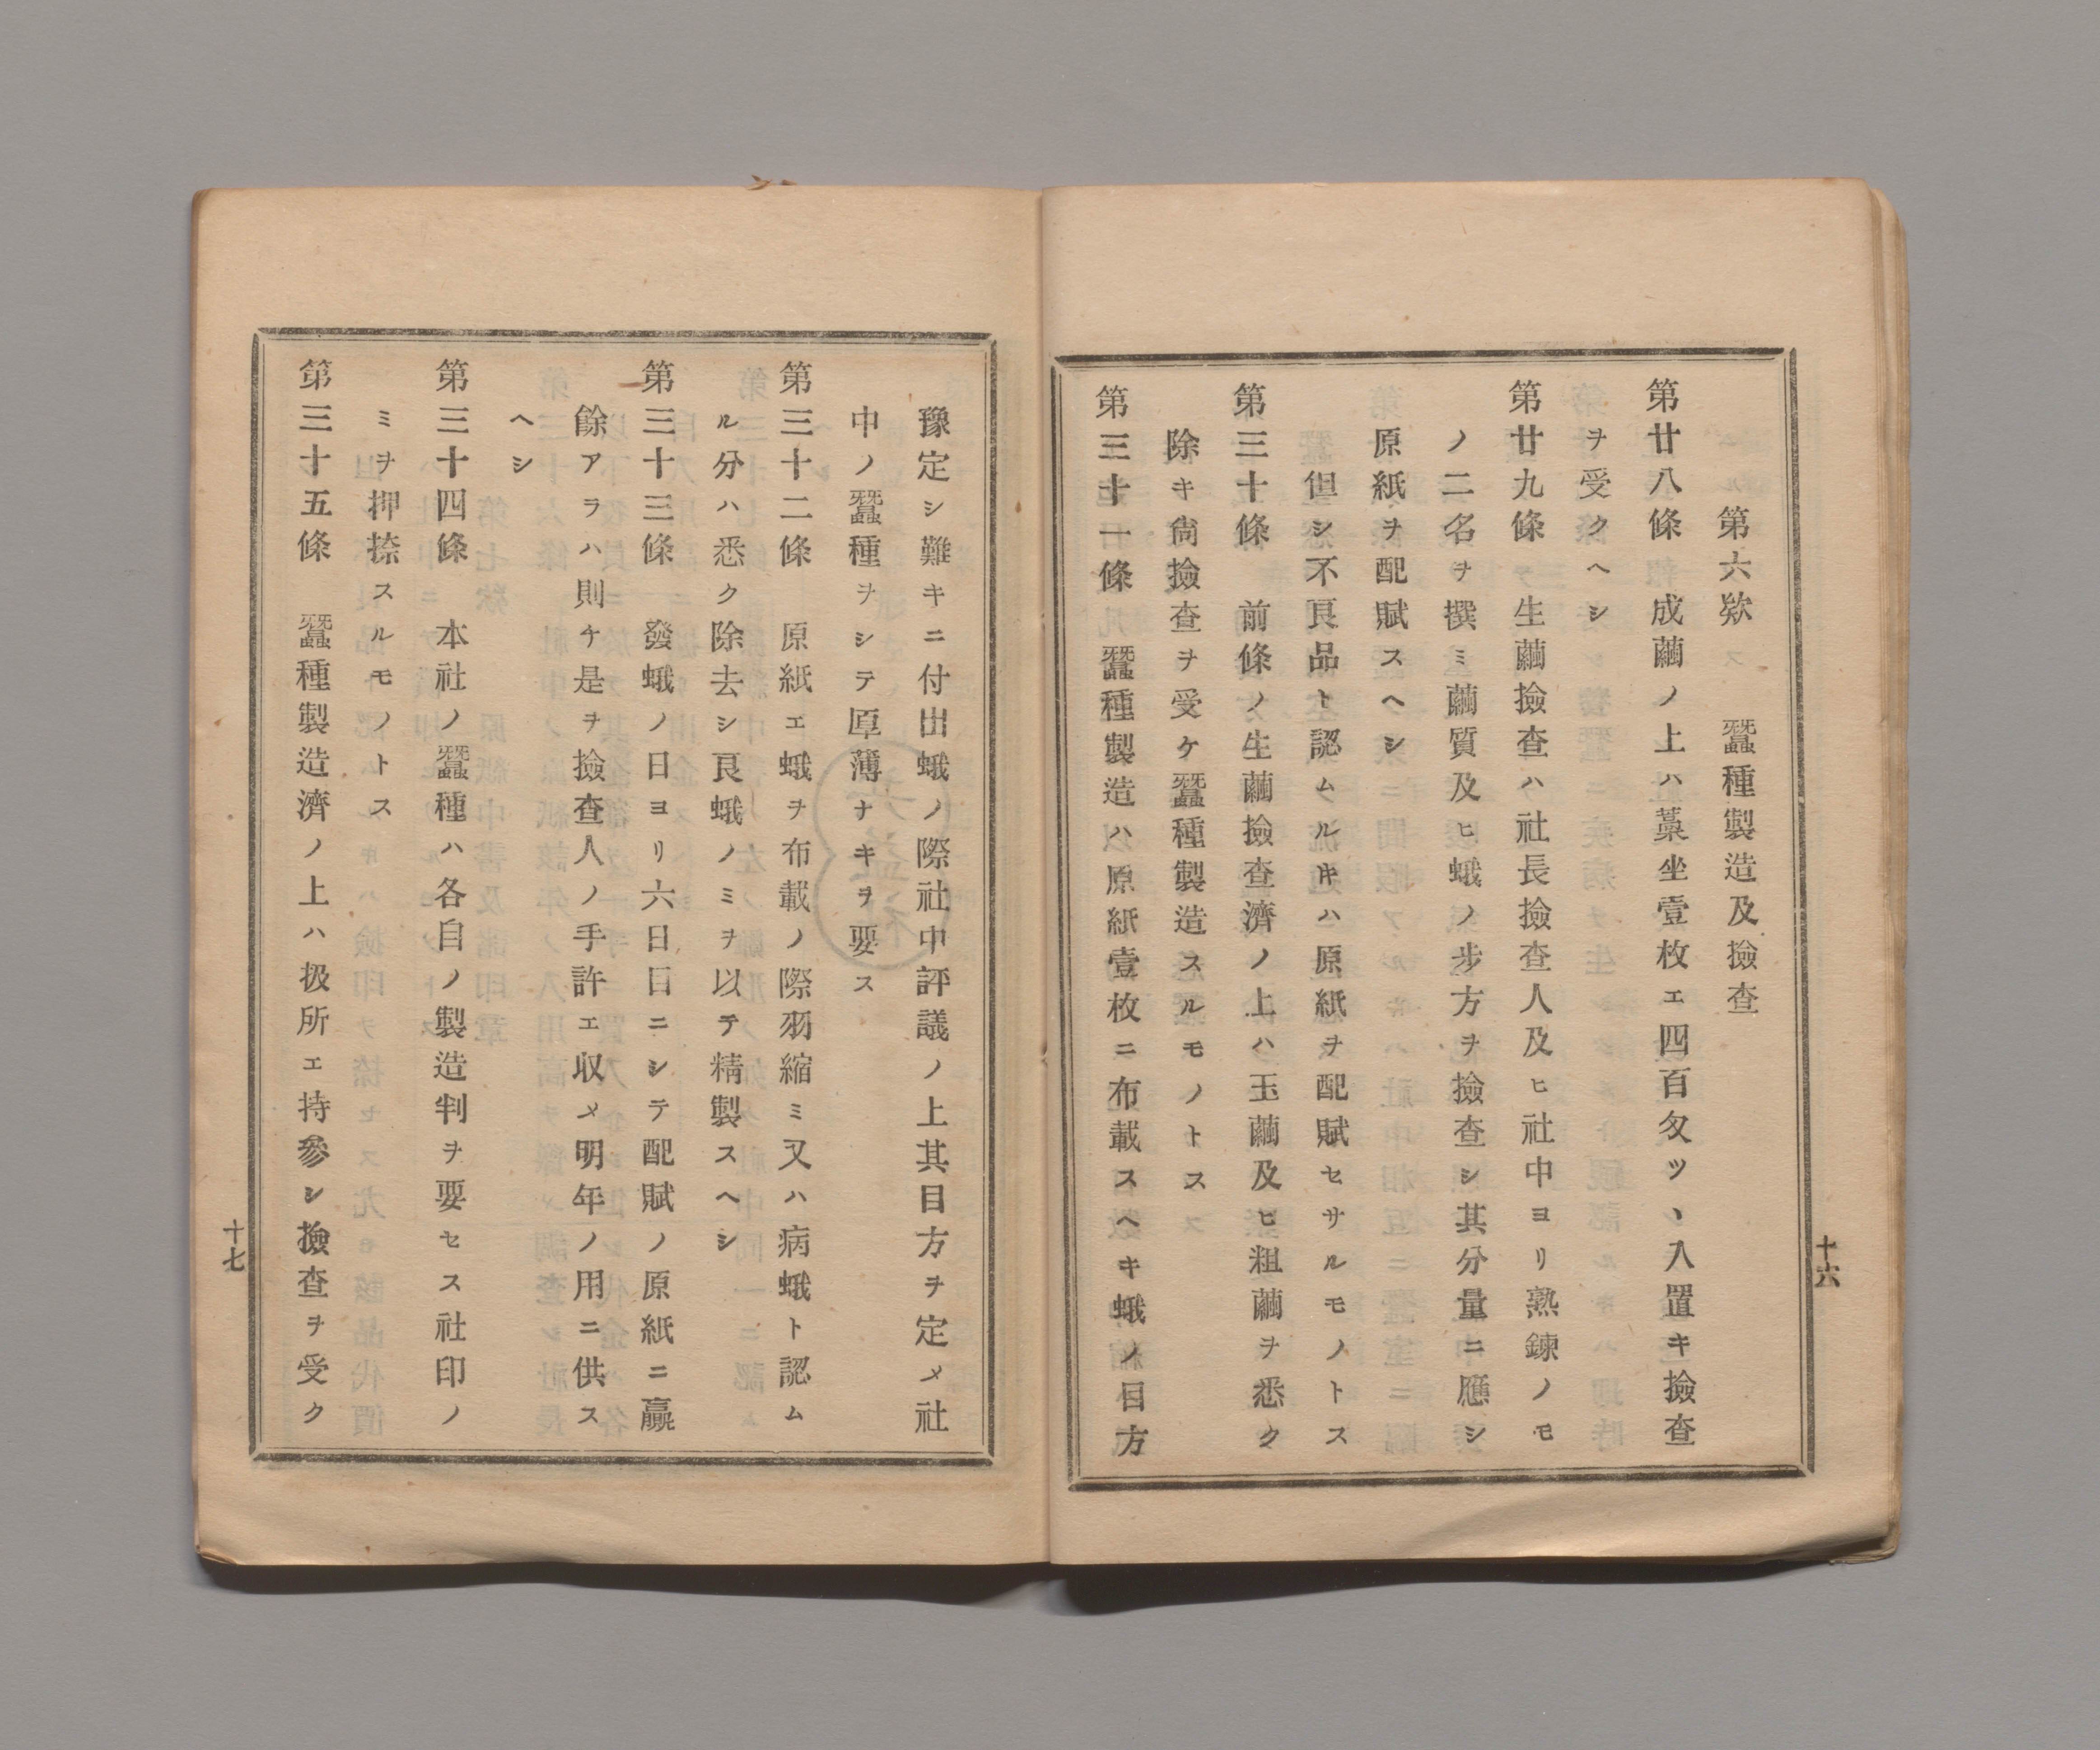 第六欵　蠶種製造及撿查
第廿八條　成繭ノ上ハ藁坐壹枚エ四百匁ツヽ入置キ撿查
ヲ受クヘシ
第廿九條　生繭撿查ハ社長撿查人及ヒ社中ヨリ熟鍊ノモ
ノ二名ヲ撰ミ繭質及ヒ蛾ノ步方ヲ撿查シ其分量ニ應シ
原紙ヲ配賦スヘシ
但シ不良品ト認ムルキハ原紙ヲ配賦セサルモノトス
第三十條　前條ノ生繭撿查濟ノ上ハ玉繭及ヒ粗繭ヲ悉ク
除キ尙撿查ヲ受ケ蠶種製造スルモノトス
第三十一條　蠶種製造ハ原紙壹枚ニ布載スヘキ蛾ノ目方
十六
豫定シ難キニ付出蛾ノ際社中評議ノ上其目方ヲ定メ社
中ノ蠶種ヲシテ厚薄ナキヲ要ス
第三十二條　原紙エ蛾ヲ布載ノ際羽縮ミ又ハ病蛾ト認ム
ル分ハ悉ク除去シ良蛾ノミヲ以テ精製スヘシ
第三十三條　發蛾ノ日ヨリ六日目ニシテ配賦ノ原紙ニ贏
餘アラハ則チ是ヲ撿查人ノ手許エ収メ明年ノ用ニ供ス
ヘシ
第三十四條　本社ノ蠶種ハ各自ノ製造判ヲ要セス社印ノ
ミヲ押捺スルモノトス
第三十五條　蠶種製造濟ノ上ハ扱所エ持參シ撿查ヲ受ク
十七